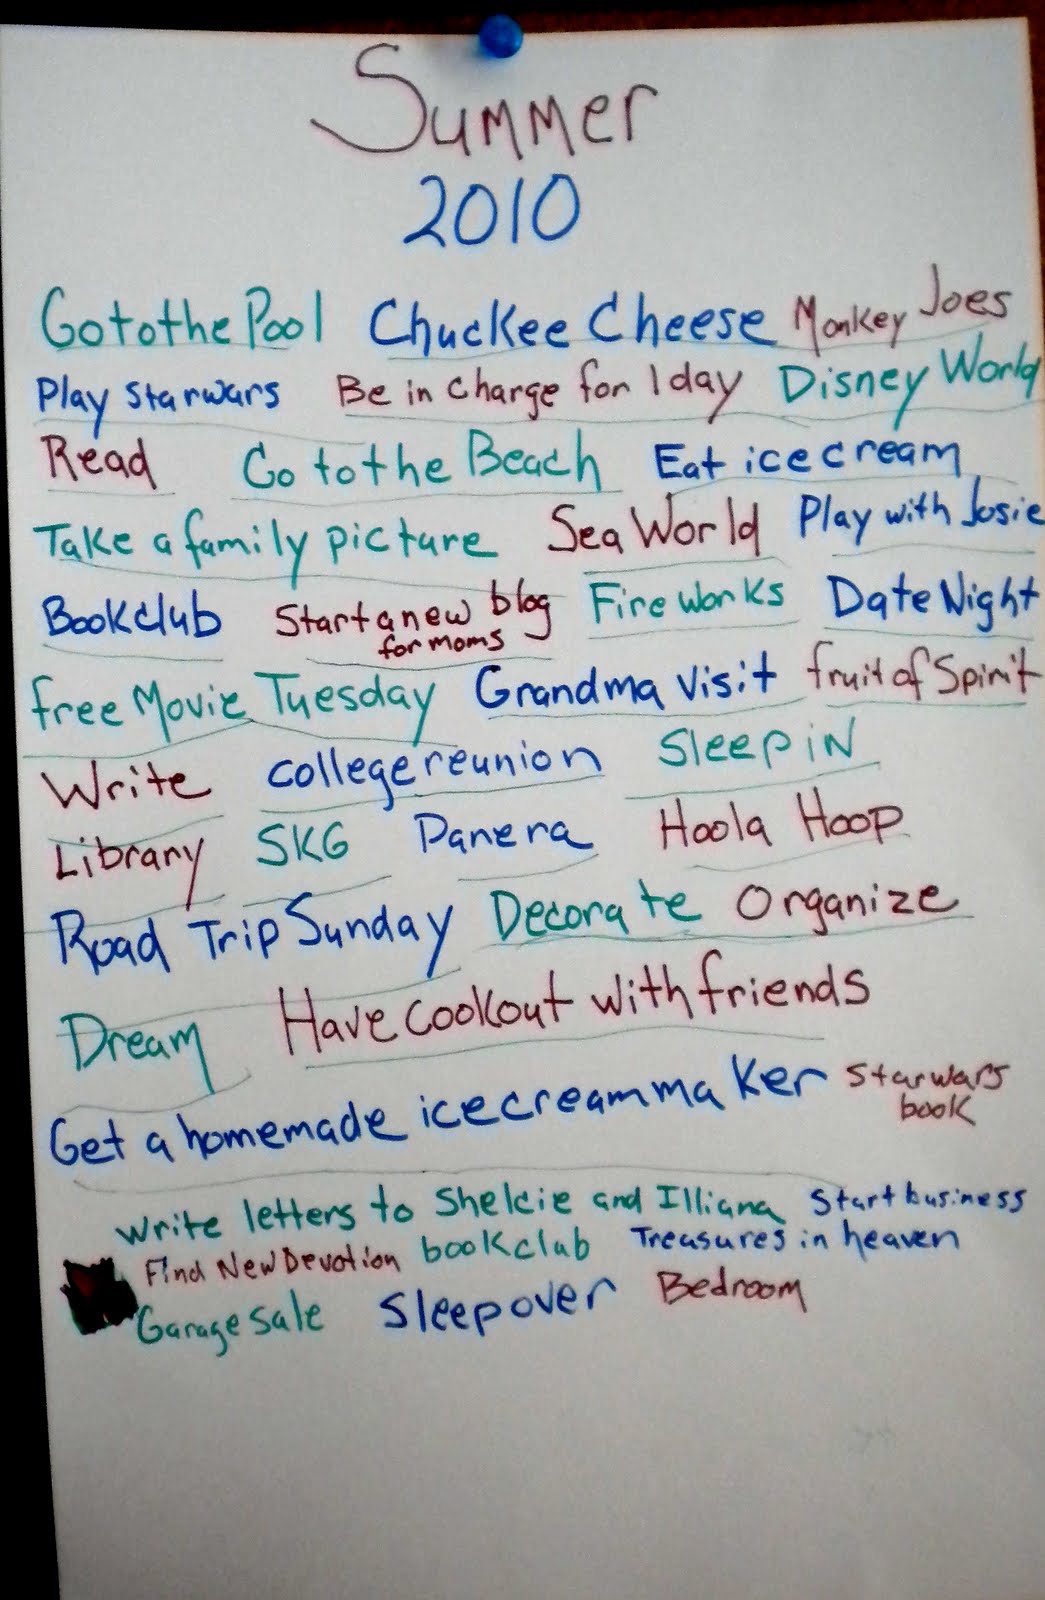 Summer
2010
Go to the Pool Chuckee Cheese Monkey Joes
Play starwars Be in charge for 1 day Disney World
Read Go to the Beach Eat ice cream
Take a family picture Sea World Play with Josie
Bookclub Start a new blog for moms Fireworks Date Night
free Movie Tuesday Grandma visit fruit of Spirit
Write college reunion Sleep in
Library SKG Panera Hoola Hoop
Road Trip Sunday Decorate Organize
Dream Have cookout with friends
Get a homemade icecream maker starwars book
write letters to Shelcie and Illiana Start business
Find New Devotion bookclub Treasures in heaven
Garage sale Sleepover Bedroom